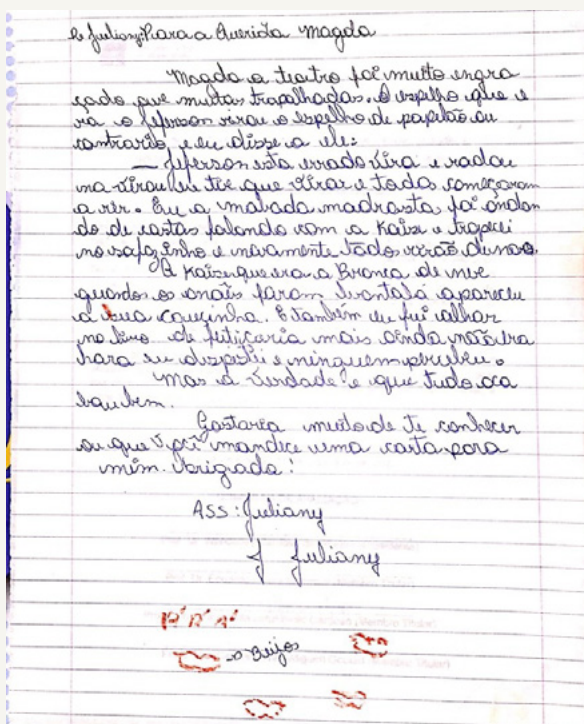 De Juliany: Para a Querida Magda
Magda o teatro foi muito engra
çado pve muitas trapalhadas. O espelho que e
ra o Jeferson virou o espelho de papelão ou
contrario, e eu disse a ele:
— Jeferson esta errado vira e
na virou eu tive que virar e todos começaram
a rir. Eu a malvada madrasta foi andan
do de costas falando com a Kaize e tropecei
no sofazinho e novamente todos rirão de novo.
A Kaize que era a Branca de neve
quandos os anões foram levantala apareceu
a sua coucinha. E também eu fui olhar
no livro de feitiçaria mais ainda não era
hora eu disfarci e ninguem percebeu.
Mas a verdade é que tudo aca
bou bem.
Gostaria muito de te conhecer
ou que você mandice uma carta para
mim. Obrigada!
ASS: Juliany
J Juliany
-o Beijos